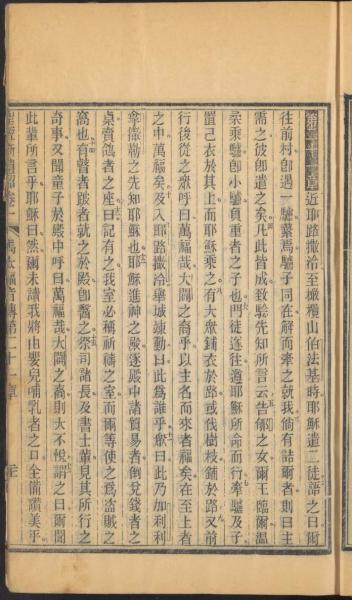 第二十一章近耶路撒冷至橄欖山伯法基時耶穌遣二徒語之曰爾
往前村卽遇一驢縶焉驢子同在解而牽之就我倘有詰爾者則曰主
需之彼卽遣之矣凡此皆成致驗先知所言云告郇之女爾王臨爾溫
柔乘驢卽小驢負重者之子也門徒遂往遵耶穌所命而行牽驢及子
置己衣於其上而耶穌乘之有大衆鋪衣於路或伐樹枝鋪於路又前
行後從之衆呼曰萬福哉大闢之裔乎以主名而來者福矣在至上者
之中萬福矣及入耶路撒冷舉城竦動曰此爲誰乎衆曰此乃加利利
拿撒勒之先知耶穌也耶穌進神之殿逐殿中諸貿易者倒兌錢者之
桌賣鴿者之座曰記有之我室必稱祈禱之室而爾等使之爲盜賊之
窩也有瞽者跛者就之於殿卽醫之祭司諸長及書士輩見其所行之
奇事又聞童子於殿中呼曰萬福哉大闢之裔則大不悅謂之曰爾聞
此輩所言乎耶穌曰然爾未讀我將由嬰兒哺乳者之口全備讚美乎
馬太福音傳第二十一章